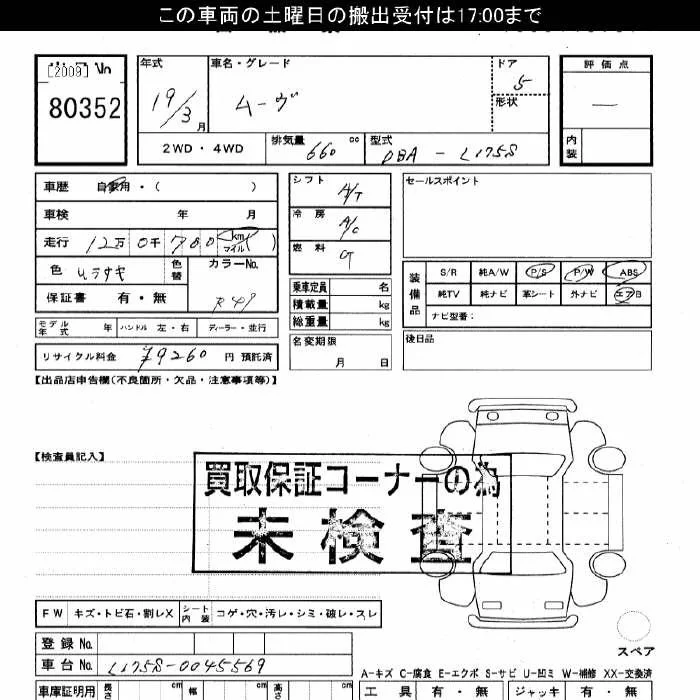 この車両の土曜日の搬出受付は17:00まで
[2009] No
80352
年式
19/3 月
車名・グレード
ムーヴ
ドア
5
形状
評価点
—
内装
2WD・4WD
排気量 660 cc
型式 DBA-L175S
車歴 自家用・( )
車検 年 月
走行 12万 0千 780 km マイル( )
色 ムラサキ
色替
カラーNo.
R49
保証書 有・無
モデル年式 年 ハンドル 左・右 ディーラー・並行
リサイクル料金 ¥9260 円 預託済
シフト A/T
冷房 A/C
燃料
乗車定員 名
積載量 kg
総重量 kg
名変期限
月 日
セールスポイント
装備品
S/R 純A/W P/S P/W ABS
純TV 純ナビ 革シート 外ナビ エアB
ナビ型番:
後日品
【出品店申告欄(不良箇所・欠品・注意事項等)】
【検査員記入】
買取保証コーナーの為
未検査
FW キズ・トビ石・割レX シート内装 コゲ・穴・汚レ・シミ・破レ・スレ
スペア
登録No.
車台No. L175S-0045569
A-キズ C-腐食 E-エクボ S-サビ U-凹ミ W-補修 XX-交換済
車庫証明用 長さ cm 幅 cm 高さ cm
工具 有・無 ジャッキ 有・無